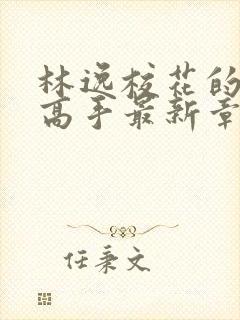 林逸校花的
高手最新章
任秉文